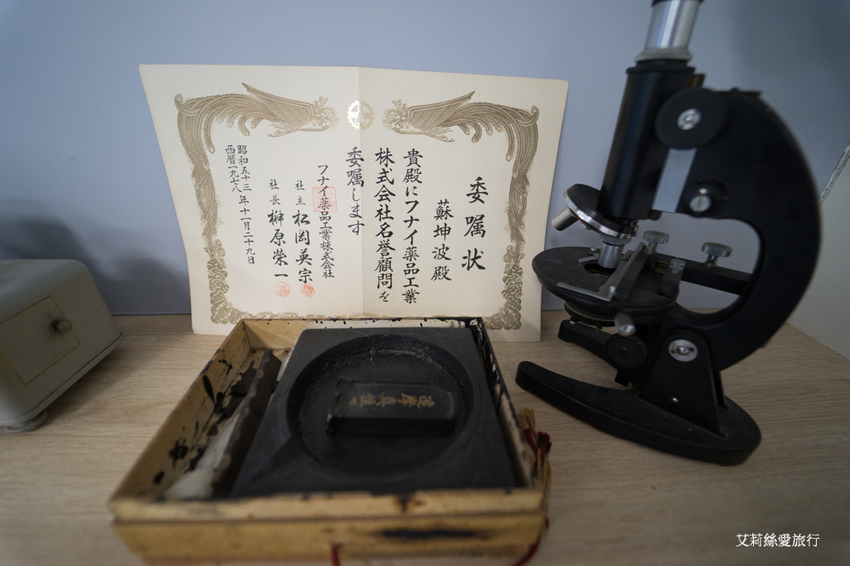 委嘱状
蘇坤波殿
貴殿にフナイ薬品工業
株式会社名誉顧問を
委嘱します
フナイ薬品工業株式会社
社主 松岡英宗
社長 榊原榮一
昭和五十三年十一月二十九日
西暦一九七八
艾莉絲愛旅行